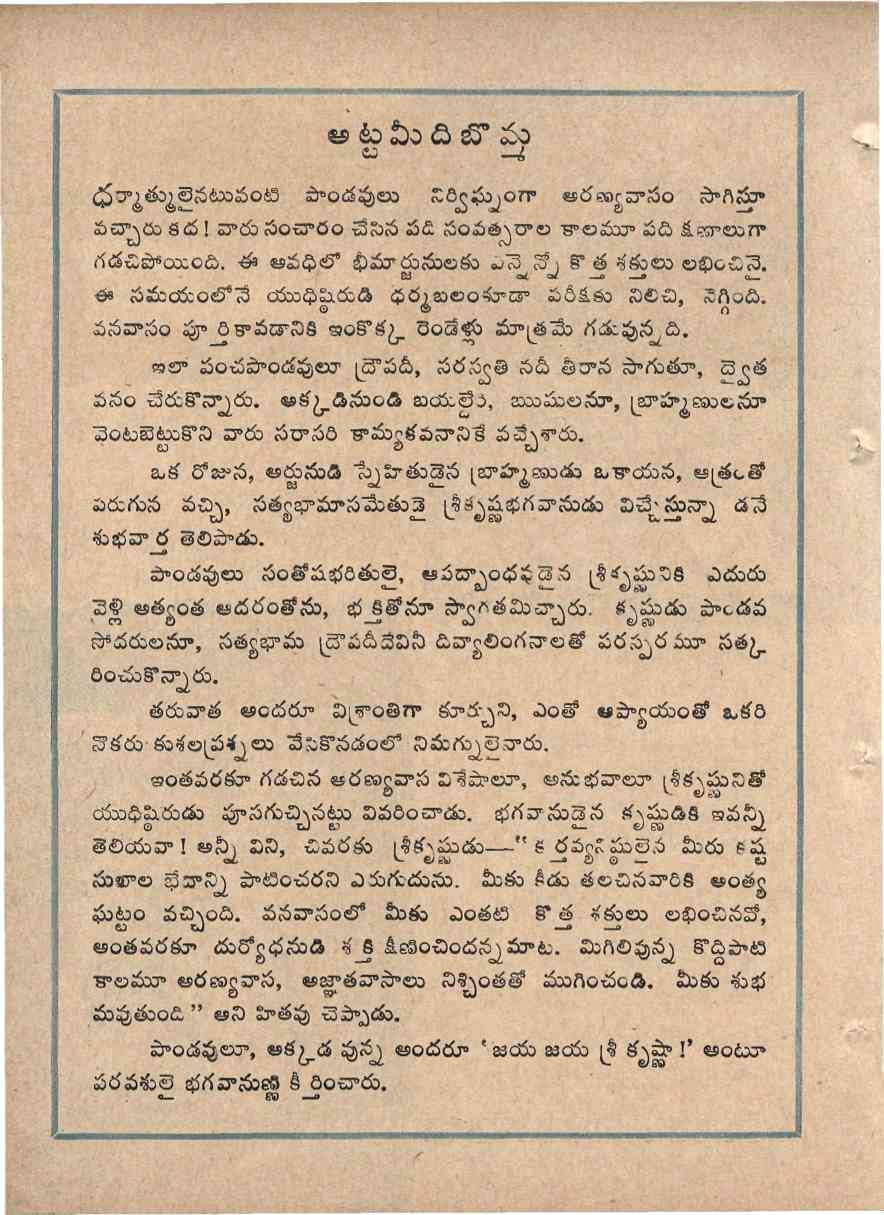 అట్టమీది బొమ్మ
ధర్మాత్ములైనటువంటి పాండవులు నిర్విఘ్నంగా అరణ్యవాసం సాగిస్తూ
వచ్చారు కద! వారు సంచారం చేసిన పది సంవత్సరాల కాలమూ పది క్షణాలుగా
గడచిపోయింది. ఈ అవధిలో భీమార్జునులకు ఎన్నెన్నో కొత్త శక్తులు లభించినై.
ఈ సమయంలోనే యుధిష్ఠిరుడి ధర్మబలంకూడా పరీక్షకు నిలిచి, నెగ్గింది.
వనవాసం పూర్తికావడానికి ఇంకొక్క రెండేళ్లు మాత్రమే గడువున్నది.
ఇలా పంచపాండవులూ ద్రౌపదీ, సరస్వతి నదీ తీరాన సాగుతూ, ద్వైత
వనం చేరుకొన్నారు. అక్కడినుండి బయల్దేరి, ఋషులనూ, బ్రాహ్మణులనూ
వెంటబెట్టుకొని వారు సరాసరి కామ్యకవనానికే వచ్చేశారు.
ఒక రోజున, అర్జునుడి స్నేహితుడైన బ్రాహ్మణుడు ఒకాయన, ఆత్రంతో
పరుగున వచ్చి, సత్యభామాసమేతుడై శ్రీకృష్ణభగవానుడు విచ్చేస్తున్నా డనే
శుభవార్త తెలిపాడు.
పాండవులు సంతోషభరితులై, ఆపద్బాంధవుడైన శ్రీకృష్ణునికి ఎదురు
వెళ్లి అత్యంత ఆదరంతోను, భక్తితోనూ స్వాగతమిచ్చారు. కృష్ణుడు పాండవ
సోదరులనూ, సత్యభామ ద్రౌపదీదేవినీ దివ్యాలింగనాలతో పరస్పరమూ సత్క
రించుకొన్నారు.
తరువాత అందరూ విశ్రాంతిగా కూర్చుని, ఎంతో ఆప్యాయంతో ఒకరి
నొకరు కుశలప్రశ్నలు వేసికొనడంలో నిమగ్నులైనారు.
ఇంతవరకూ గడచిన అరణ్యవాస విశేషాలూ, అనుభవాలూ శ్రీకృష్ణునితో
యుధిష్ఠిరుడు పూసగుచ్చినట్టు వివరించాడు. భగవానుడైన కృష్ణుడికి ఇవన్నీ
తెలియవా! అన్నీ విని, చివరకు శ్రీకృష్ణుడు—“కర్తవ్యనిష్ఠులైన మీరు కష్ట
సుఖాల భేదాన్ని పాటించరని ఎరుగుదును. మీకు కీడు తలచినవారికి అంత్య
ఘట్టం వచ్చింది. వనవాసంలో మీకు ఎంతటి కొత్త శక్తులు లభించినవో,
అంతవరకూ దుర్యోధనుడి శక్తి క్షీణించిందన్నమాట. మిగిలివున్న కొద్దిపాటి
కాలమూ అరణ్యవాస, అజ్ఞాతవాసాలు నిశ్చింతతో ముగించండి. మీకు శుభ
మవుతుంది” అని హితవు చెప్పాడు.
పాండవులూ, అక్కడ వున్న అందరూ ‘జయ జయ శ్రీ కృష్ణా!’ అంటూ
పరవశులై భగవానుణ్ణి కీర్తించారు.